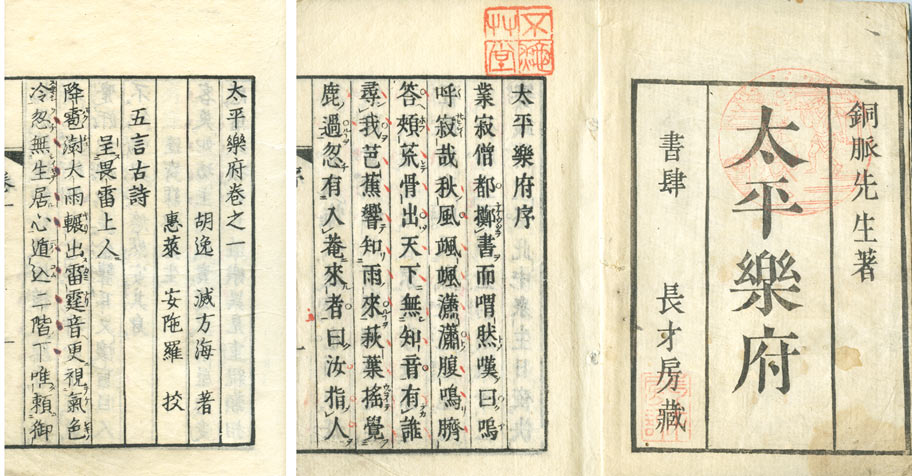 銅脈先生著
太平樂府
書肆 長才房藏
太平樂府序
業寂僧都擲書而喟然嘆曰嗚
呼寂哉秋風颯颯瀟瀟腹嗚臍
答頰荒骨出天下無知音有誰
尋我芭蕉響知雨來萩葉搖覺
鹿過忽有入菴來者曰汝指人
太平樂府卷之一
胡逸滅方海 著
惠萊 安陀羅 挍
五言古詩
呈畏雷上人
降雹澍大雨輾出雷霆音更視氣色
冷忽無生居心遁込二階下唯頼御